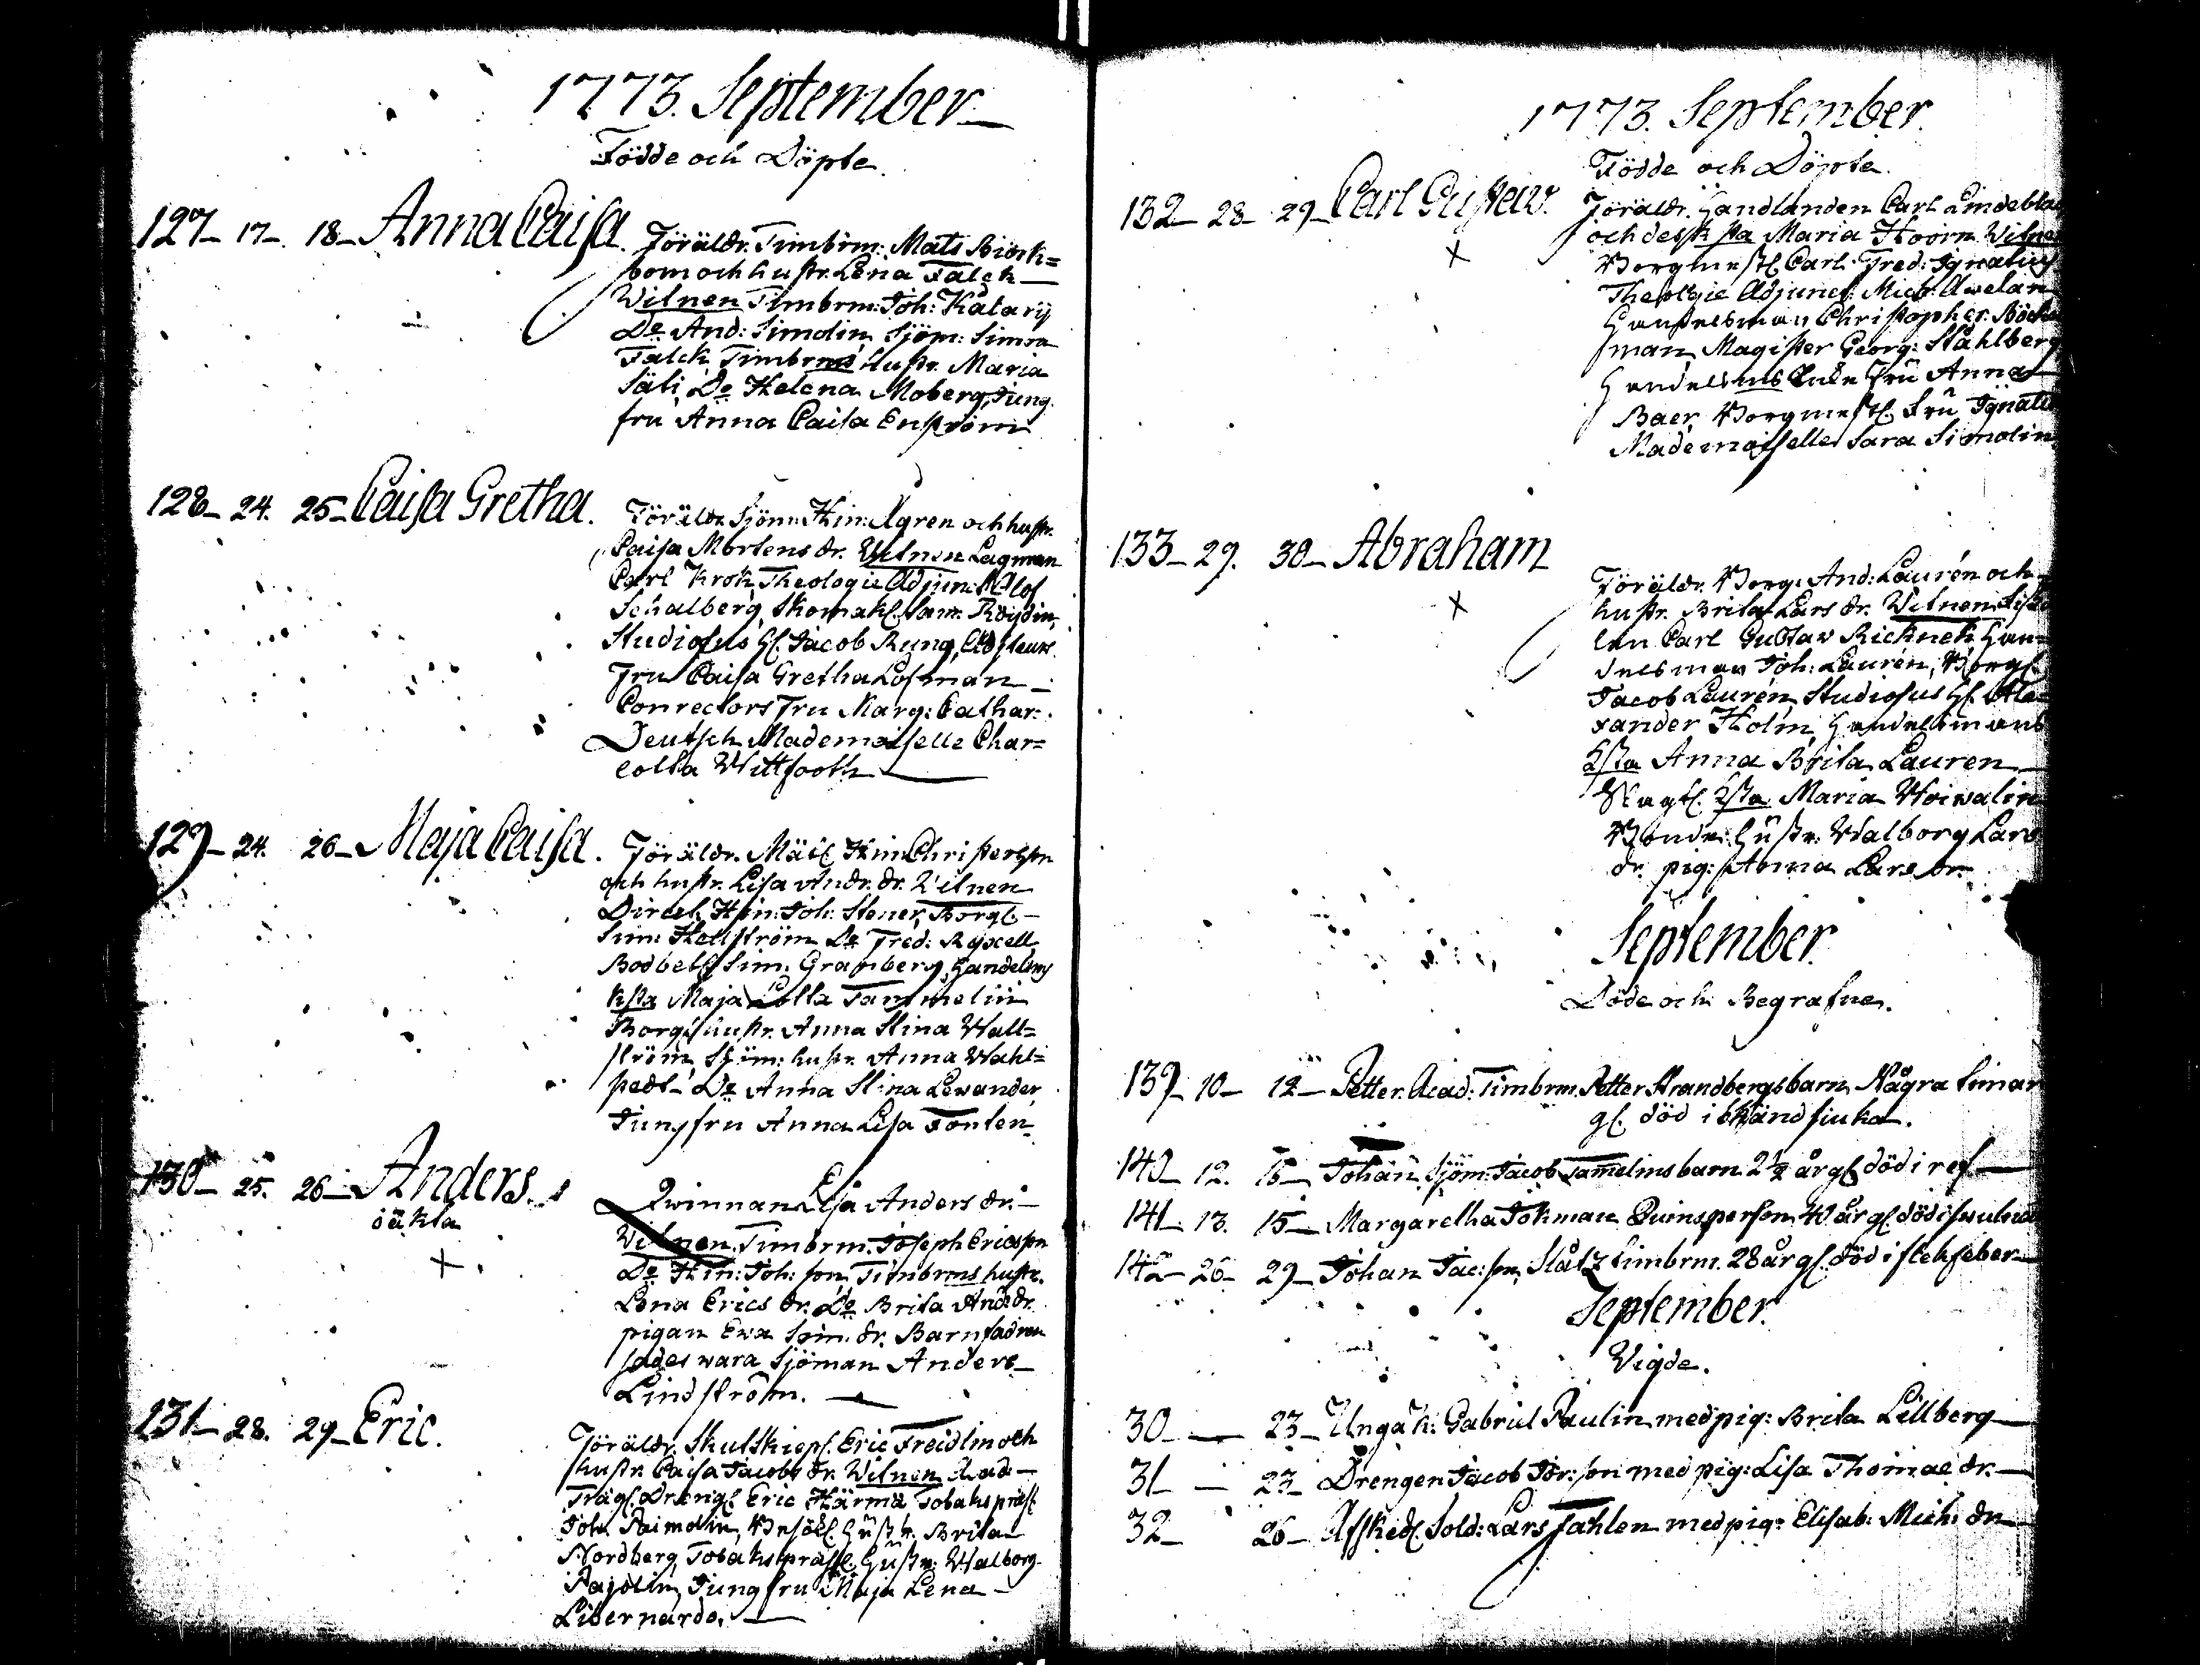 1773. September
Födde och Döpte.
127 17. 18 Anna Caisa. Föräldr. Timbrm: Mats Biörk=
bom och hustr. Lena Falck
Witnen Timbrm: Joh: Katarÿ
Do And: Simolin, Sjöm: Simon
Falck, Timbrms hustr. Maria
Säti, Do Helena Moberg, Jung
fru Anna Caisa Enström
128 24. 25 Caisa Gretha. Föräldr. Sjöm: Hin: Ågren och hustr.
Caisa Mårtens dr. Witnen Lagman
Carl Krok, Theologie Adjun: Olof
Schalberg, Skomak. Sam: Röydin,
Studiosus H. Jacob Rung,
Fru Caisa Gretha Lofman
Conrectors Fru Marg: Cathar:
Deutsch, Mademoiselle Char=
lotta Wittfooth
129 24. 26 Maja Caisa. Föräldr. Hin: Christerson
och hustr. Lisa Andr. dr. Witnen
Direct. Hin: Joh: Stener, Borg.
Sim: Hellström Do Fred: Ryxell
Bodbet. Sim: Granberg, Handelsm
hsta Maja Lotta Tammelin
Borg. hustr. Anna Stina Wall=
ström, Sjöm: hustr. Anna Wahl=
stedt, Do Anna Stina Lewander
Jungfru Anna Lisa Fonlen
130 25. 26 Anders
oäkta
Qwinnan Lisa Anders dr.
Witnen, Timbrm. Joseph Ericsson
Do Hin: Joh: son, Timbrms hustr.
Lena Erics dr. Do Brita And: dr.
pigan Ewa Sim: dr. Barnfadren
sades wara Sjöman Anders
Lindström.
131 28. 29 Eric.
Föräldr. Skutskiep. Eric Freidlin och
hustr. Caisa Jacobs dr. Witnen Acad
Träg. Dreng. Eric Härmä Tobaks präss
Joh. Raimolin, Besök. Hustr. Brita
Nordberg, Tobakspräss. Hustr: Walborg
Pajolin, Jungfru Maja Lena
Libernardo.
1773. September.
Födde och Döpte.
132 28 29 Carl Gustaw. Föräldr. Handlanden Carl Lindeblad
och dess k sta Maria Hoorn, Witnen
Borgmest. Carl. Fred: Ignatius
Theologie Adjunct: Mich: Awelan
Handelsman Christopher Böck
man, Magister Georg: Stahlberg
Handelsms Enke Fru Anna
Baer, Borgmest. Fru Ignatii
Mademoiselle Sara Simolin
133 29. 30 Abraham
Föräldr. Borg: And: Laurén och
hustr. Brita Lars dr. Witnen
Carl Gustav Ricknek Han=
delsman Joh: Laurén, Borg.
Jacob Laurén, Studiosus H. Ale=
xander Holm, Handelsmans
hsta Anna Brita Lauren
hsta Maria Woiwalin
Bonde: Hustr: Walborg Lars
dr. pig: Anna Lars dr.
September.
Döde och Begrafne.
139 10 12 Petter. Acad: Timbrm. Petter Strandbergs barn, Några timar
gl. död i okiänd siuka.
140 12. 15 Johan, Sjöm: Jacob Tamelins barn 2 1/2 år gl. död i ref
141 13. 15 Margaretha Tokman Quinsperson 40 år gl. död i swulnad
142 26 29 Johan Jac: son, Slåtz timbrm. 28 år gl. död i stekfeber
September.
Vigde.
30 23 Unga K: Gabriel Paulin med pig: Brita Lillberg
31 23 Drengen Jacob Jör: son med pig: Lisa Thomae dr.
32 26 Afsked. Sold: Lars Fahlen med pig: Elisab: Mich: dr